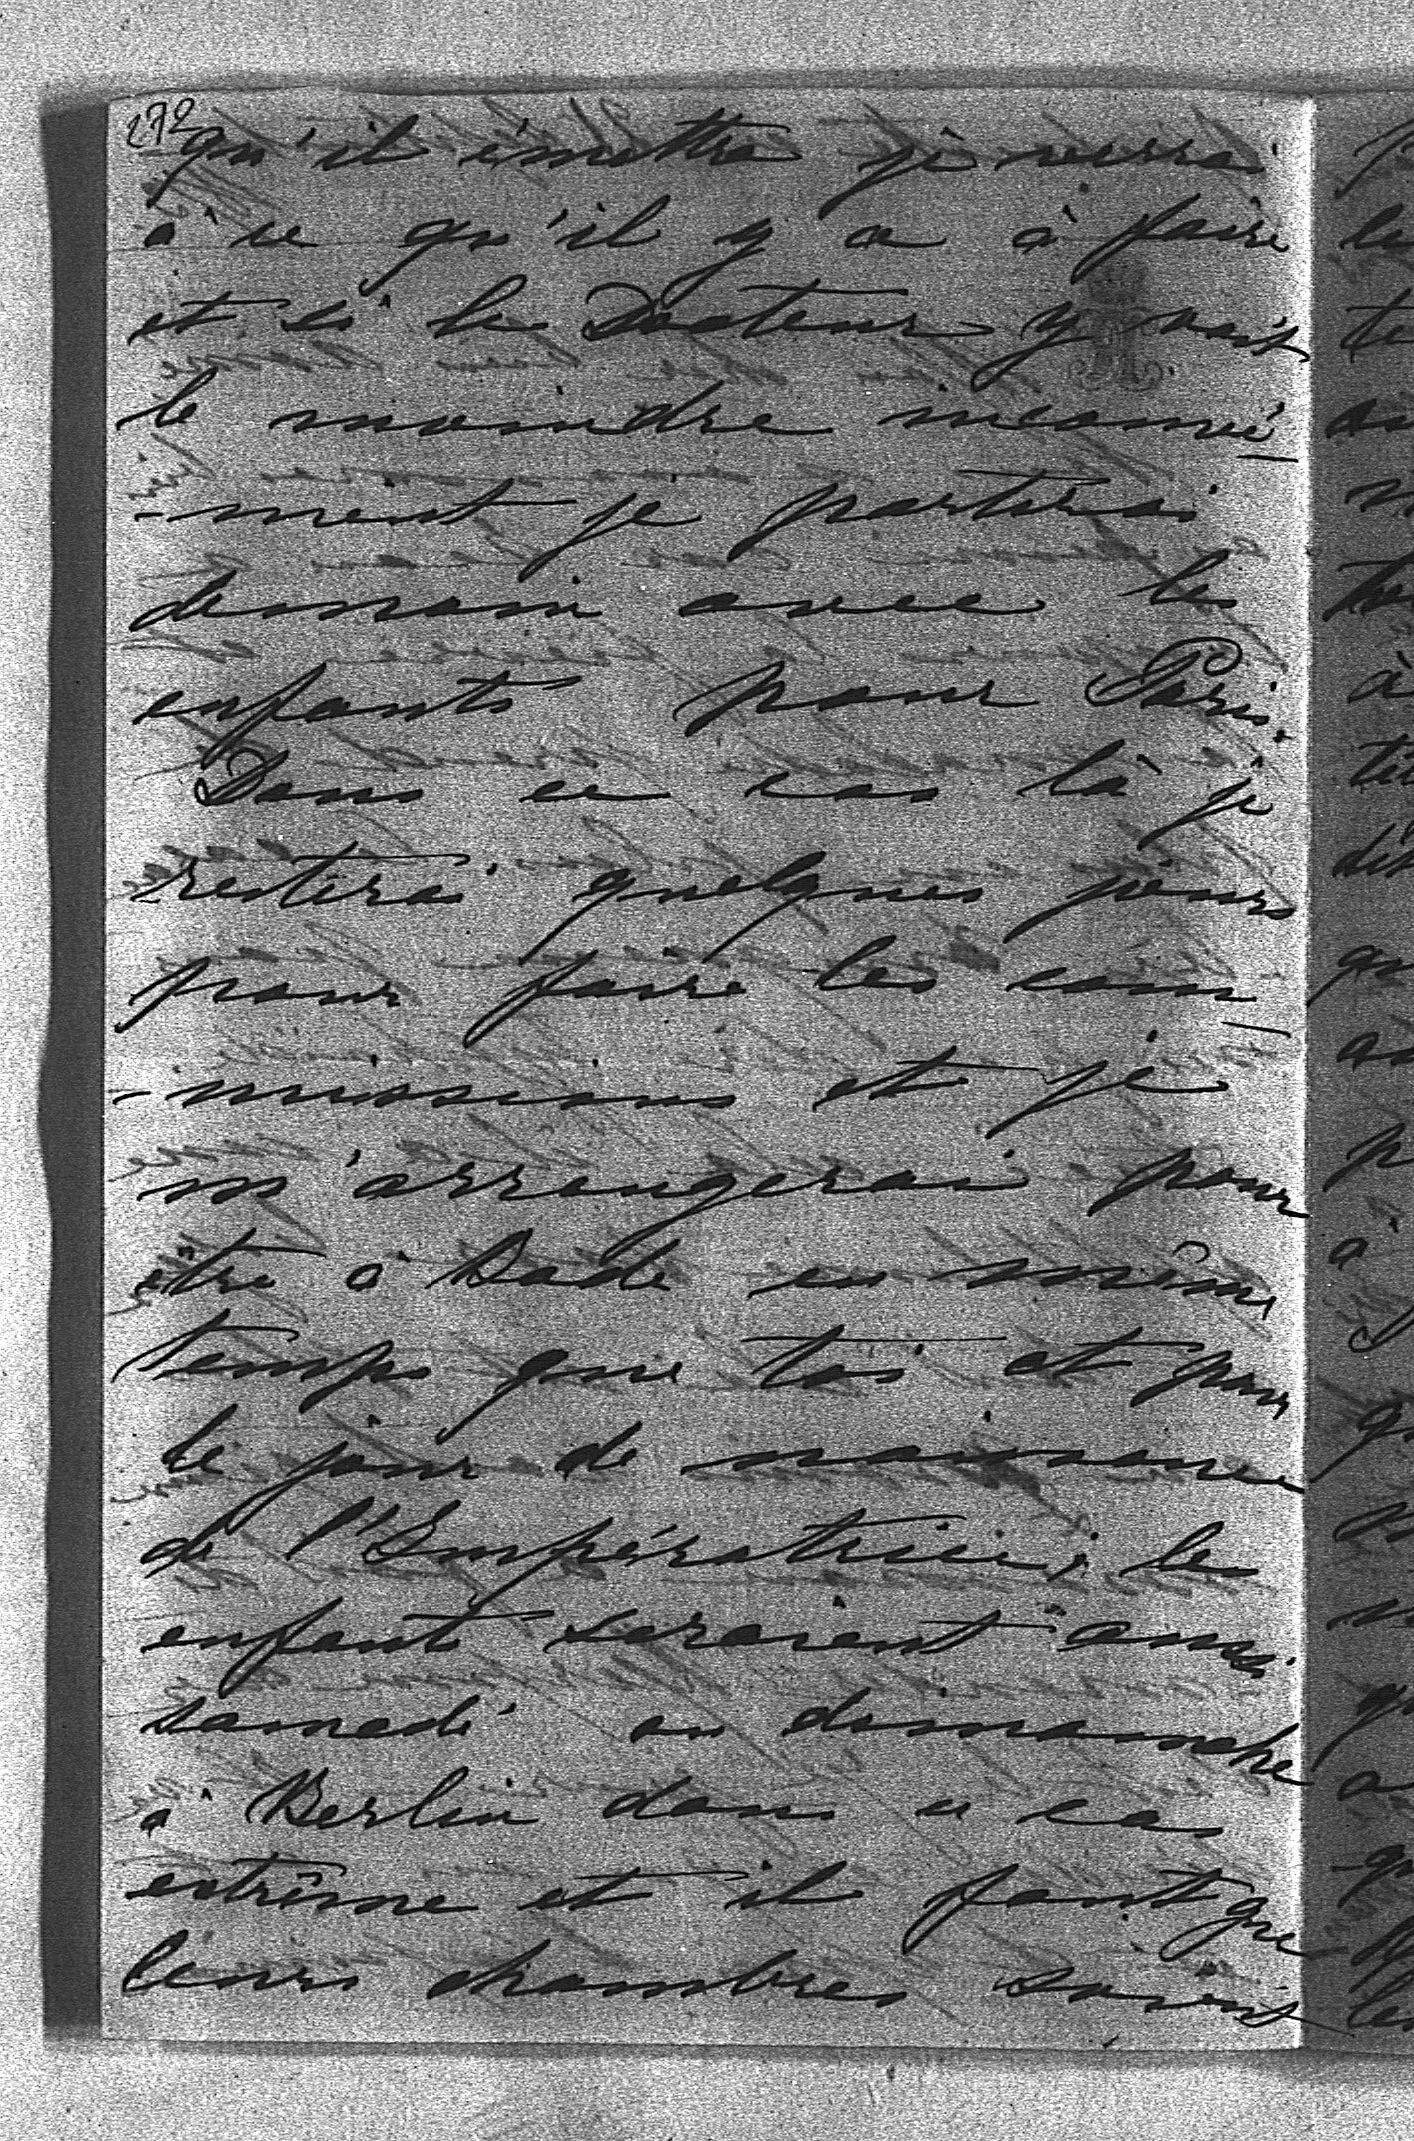 272
qu'il émettra je verrai
à ce qu'il y a à faire
et si le Docteur y voit
le moindre inconvé-
-nient je partirai
demain avec les
enfants pour Paris.
Dans ce cas là je
resterai quelques jours
pour faire les com-
-missions et je
m'arrangerai pour
être à Bade en même
temps que toi et pour
le jour de naissance
de l'Impératrice; les
enfants seraient ainsi
samedi ou dimanche
à Berlin dans ce cas
extrême et il faut que
leurs chambres soient